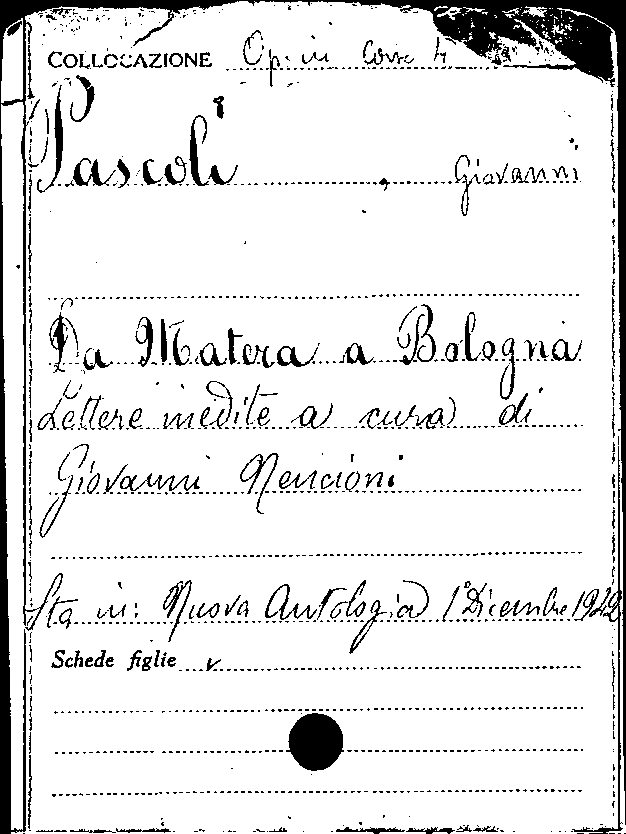 COLLOCAZIONE Op. in Corr. 4
Pascoli, Giovanni
Da Matera a Bologna
Lettere inedite a cura di
Giovanni Nencioni
Sta in: Nuova Antologia 1° Dicembre 1942
Schede figlie v